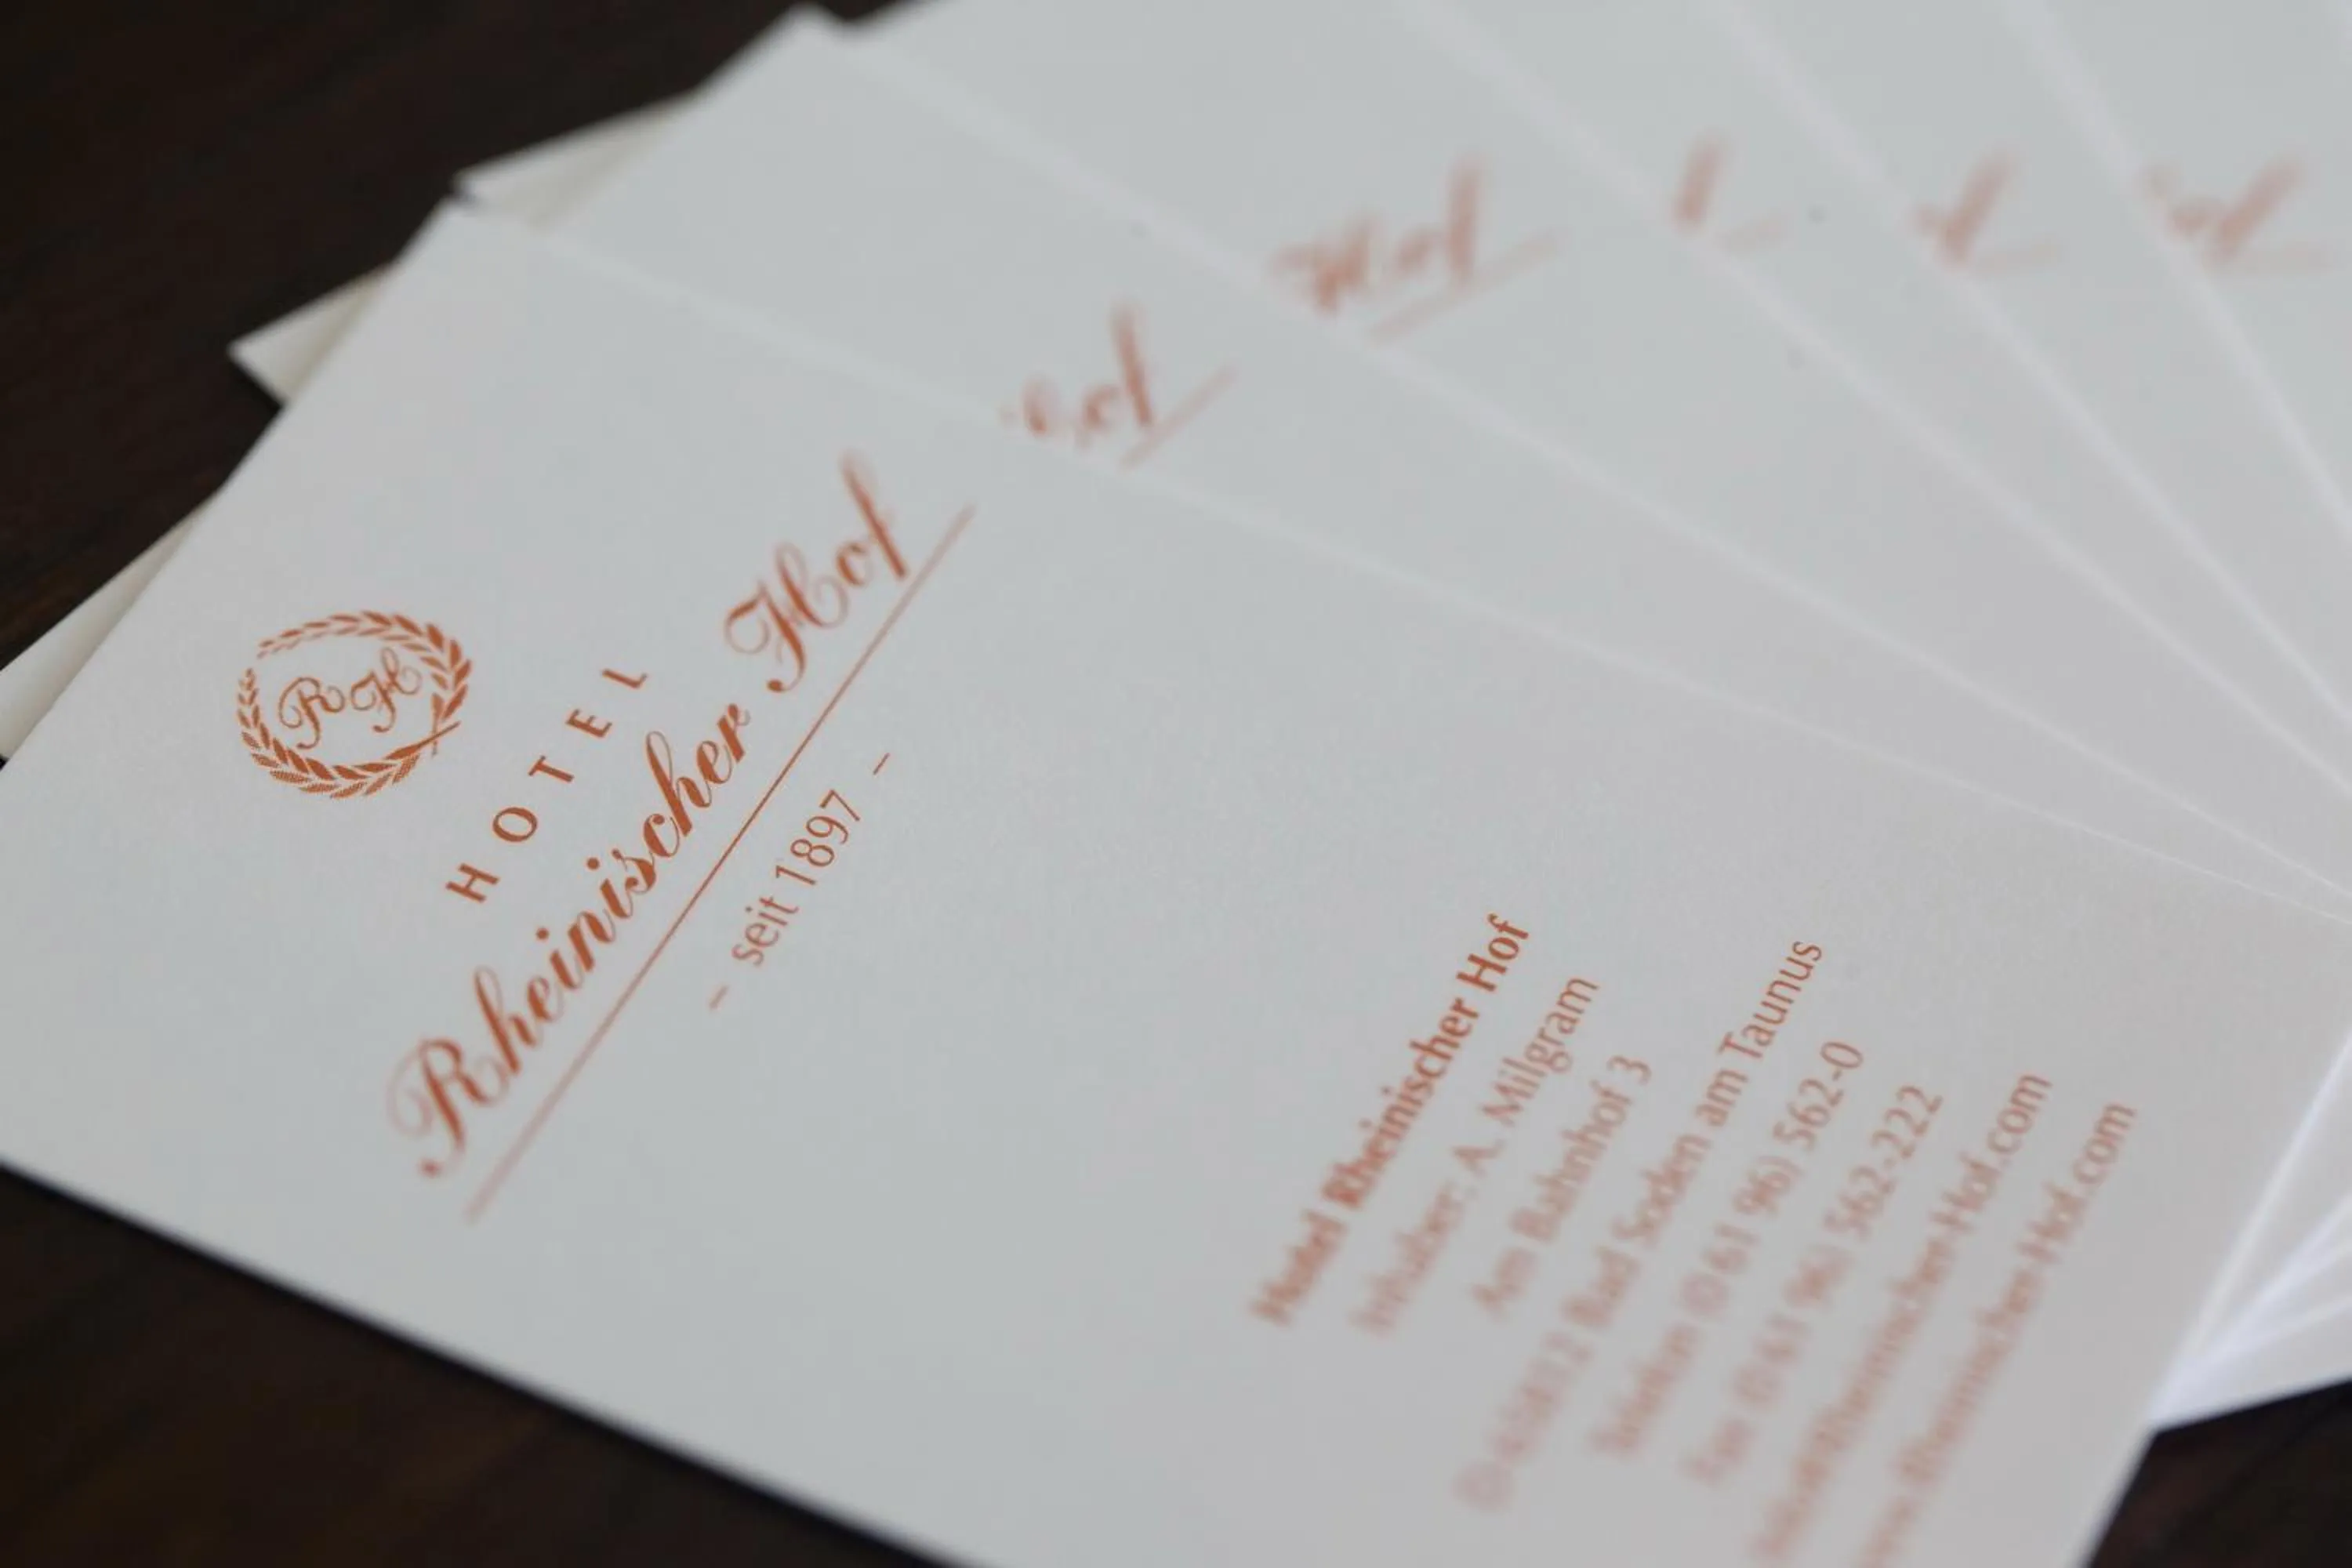 RH
HOTEL
Rheinischer Hof
– seit 1897 –
Hotel Rheinischer Hof
Inhaber: A. Milgram
Am Bahnhof 3
Bad Soden am Taunus
Telefon (0 61 96) 562-0
Fax (0 61 96) 562-222
www.Rheinischer-Hof.com
Hof
Hof